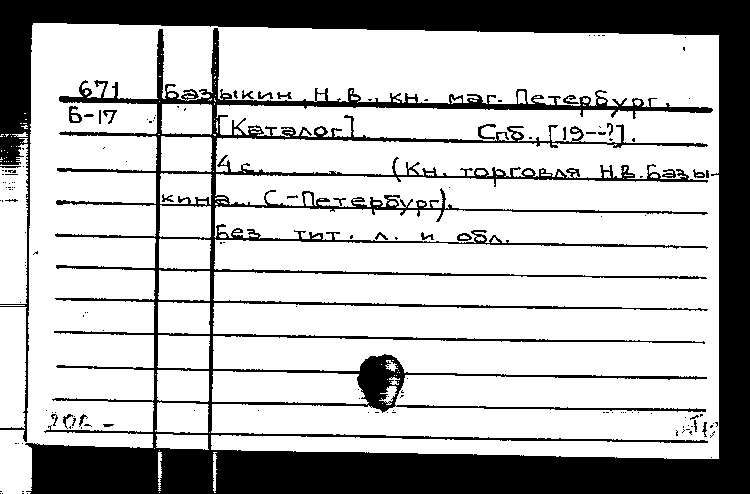 671 Базыкин, Н.В., кн. маг. Петербург.
Б-17
[Каталог]. Спб., [19--?].
4 с. (Кн. торговля Н.В. Базы-
кина. С.-Петербург).
Без тит. л. и обл.